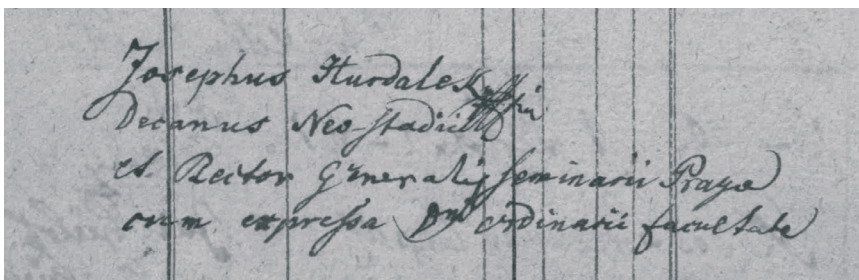 Josephus Hurdalek mpia
Decanus Neo-stadii
et Rector Generalis seminarii Pragæ
cum expressa Dni ordinarii facultate